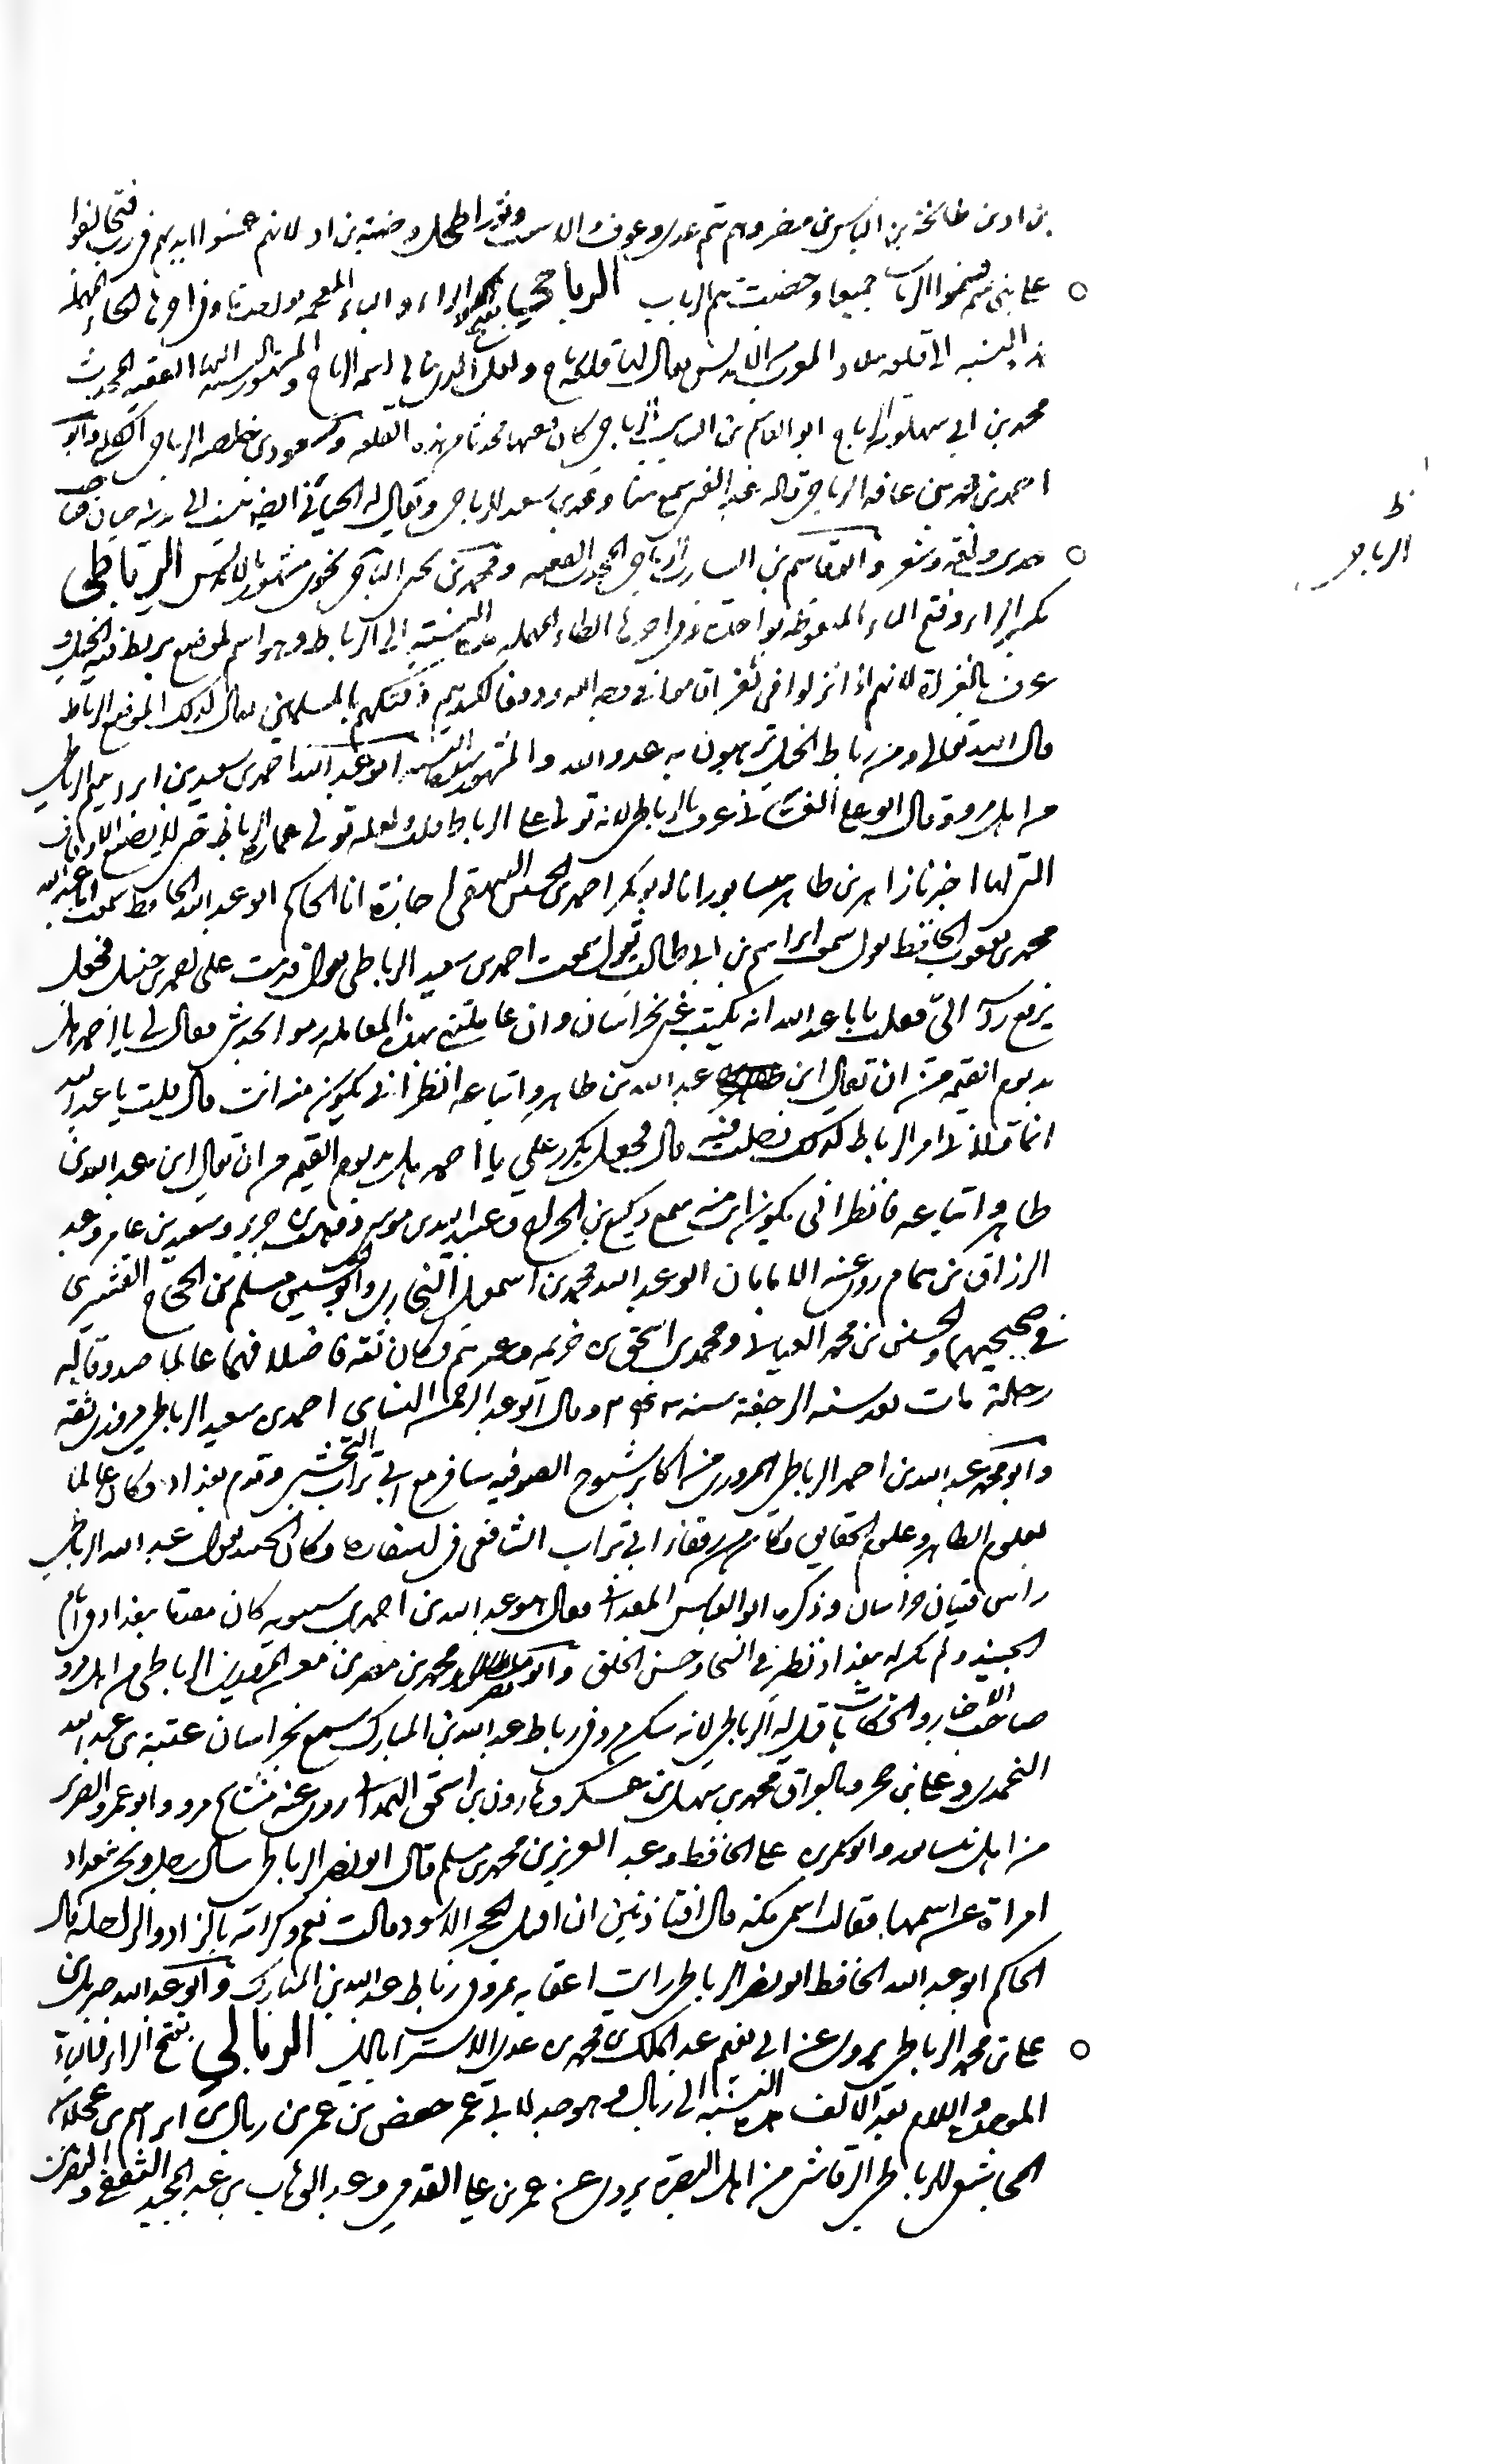 بن اد بن طابخة بن الياس بن مضر وهم تيم عدي وعوف والاشيب وثور اطحل وضبة بن اد لانهم غمسوا ايديهم في رب فتحالفوا
على بني تميم فسموا الرباب جميعا وخصت تيم بالرباب الرباحي بفتح الراء والباء المعجمة بواحدة وفي اخرها الحاء المهملة
هذه النسبة الى قلعة ببلاد المغرب من الاندلس يقال لها قلعة رباح ولعل الذي بناها اسمه رباح والمشهور بالنسبة اليها الفقيه المحدث
محمد بن ابي سهلويه الرباحي ابو القاسم بن الشارب الرباحي كان فقيها محدثا من هذه القلعة وكسعودي خلصه الرباحي النحوي وابو
احمد بن عافيه الرباحي قاله عبد الغني سمع منا ومحمد بن سعد الرباحي ويقال له الجياني ايضا نسب الى مدينة جيان صاحب
حديث ولغة وشعر والقاسم بن الشارب الرباحي المحدث الفقيه ومحمد بن يحيى الرباحي نحوي مشهور بالاندلس الرباطي
بكسر الراء وفتح الباء المنقوطة بواحدة وفي اخرها الطاء المهملة هذه النسبة الى الرباط وهو اسم لموضع يربط فيه الخيل و
عرف بالغزاة لانهم اذا نزلوا في ثغر اقاموا في وجه الله ودفعا لكيدهم وفتكهم بالمسلمين يقال لذلك الموضع الرباط
قال الله تعالى ومن رباط الخيل ترهبون به عدو الله والمشهور بهذه النسبة ابو عبد الله احمد بن سعيد بن ابراهيم الرباطي
من اهل مرو وقال ابو علي الغساني عرف بالرباطي لانه تولى على الرباط قلت ولعله تولى عمارة الرباط حتى لا يضيع الاوقاف
التي لها اخبرنا زاهر بن طاهر بنيسابور انا ابو بكر احمد بن الحسين البيهقي اجازة انا الحاكم ابو عبد الله الحافظ سمعت ابا عبد الله
محمد بن يعقوب الحافظ يقول سمعت ابراهيم بن ابي طالب يقول سمعت احمد بن سعيد الرباطي يقول قدمت على احمد بن حنبل فجعل
يرفع راسه الي فقلت يا ابا عبد الله انه يكتب عني بخراسان وان عاملتني بهذه المعاملة رموا بحديثي فقال لي يا احمد هل
بد يوم القيمة من ان يقال اين عبد الله بن طاهر واتباعه انظر اني تكون منه انت قال قلت يا عبد الله
انما ولاني امر الرباط لذلك دخلت فيه قال فجعل يكرر علي يا احمد هل بد يوم القيمة من ان يقال اين عبد الله بن
طاهر واتباعه فانظر اني تكون انت منه سمع وكيع بن الجراح وعبيد الله بن موسى ووهب بن جرير وسعيد بن عامر وعبد
الرزاق بن همام روى عنه الامامان ابو عبد الله محمد بن اسمعيل البخاري وابو الحسين مسلم بن الحجاج القشيري
في صحيحيهما والحسين بن محمد القباني ومحمد بن اسحق بن خزيمة وغيرهم وكان ثقة فاضلا فهما عالما صدوقا له
رحلة مات بعد سنة الرجفة سنة ٢٤٣ وقال ابو عبد الرحمن النسائي احمد بن سعيد الرباطي مروزي ثقة
وابو محمد عبد الله بن احمد الرباطي المروزي من اكابر شيوخ الصوفية سافر مع ابي تراب النخشبي وقدم بغداد وكان عالما
بعلوم الظاهر وعلوم الحقايق وكان من رفقاء ابي تراب النخشبي في اسفاره وكان الجنيد يقول عبد الله الرباطي
راس فتيان خراسان وذكره ابو العباس المعداني فقال هو عبد الله بن احمد بن شبويه كان مقيما ببغداد في ايام
الجنيد ولم يكن له ببغداد نظير في السخاء وحسن الخلق وابو نصر محمد بن مضر بن معن المروزي الرباطي من اهل مرو
صاحب الاخبار والحكايات قيل له الرباطي لانه سكن مرو في رباط عبد الله بن المبارك سمع بخراسان عتبة بن عبد الله
اليحمدي وعلي بن حجر وبالعراق محمد بن سهل بن عسكر وهارون بن اسحق الهمداني روى عنه مشايخ مرو وابو عمرو الضرير
من اهل نيسابور وابو بكر بن علي الحافظ وعبد العزيز بن محمد بن مسلم قال ابو نصر الرباطي سال رجل ونحن ببغداد
امراة عن اسمها فقالت اسمي مكة قال افتاذنين ان اقبل الحجر الاسود قالت نعم وكرامة بالزاد والراحلة قال
الحاكم ابو عبد الله الحافظ ابو نصر الرباطي رايت اعقابه بمرو في رباط عبد الله بن المبارك وابو عبد الله
علي بن محمد الرباطي يروي عن ابي نعيم عبد الملك بن محمد بن عدي الاستراباذي الربالي بفتح الراء والباء
الموحدة واللام بعد الالف هذه النسبة الى ربال وهو جد لابي عمر حفص بن عمر بن ربال بن ابراهيم بن عجلان
المجاشعي الربالي الرقاشي من اهل البصرة يروي عن عمر بن علي المقدمي وعبد الوهاب بن عبد المجيد الثقفي والنضر بن
ظ
الرباحي